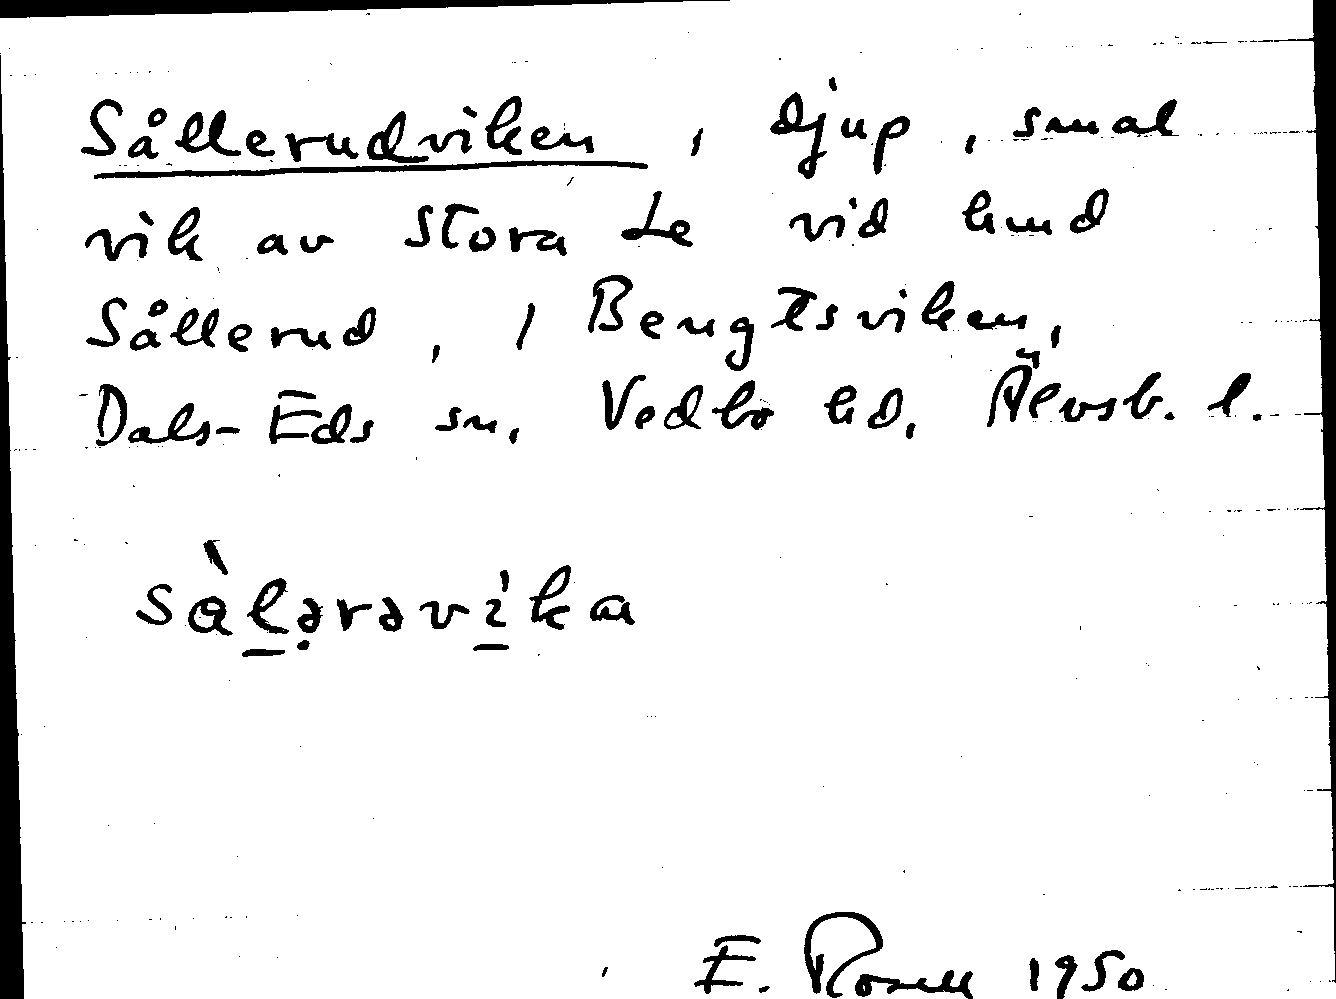 Sållerudviken, djup, smal
vik av Stora Le vid hmd
Sållerud, / Bengtsviken,
Dals-Eds sn, Vedbo hd, Älvsb. l.
sàlərəvika
E. Rosell 1950